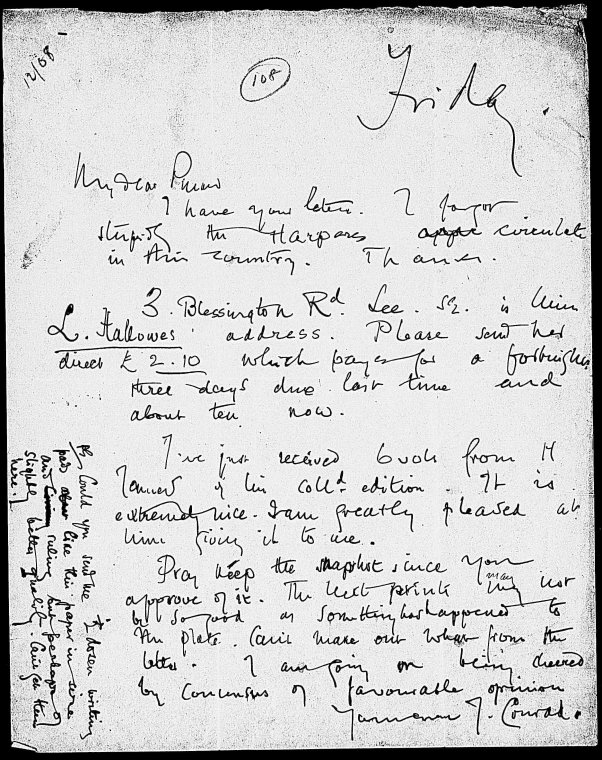 12/08
108
Friday.
My dear Pinker
I have your letter. I forgot
stupidly the Harpers circulate
in this country. Thanks.
3. Blessington Rd. Lee. SE. is Miss
L. Hallowes address. Please send her
direct £ 2.10 which pays for a fortnight
three days due last time and
about ten now.
I've just received 6 vols from H
James of his colld edition. It is
extremely nice. I am greatly pleased at
him giving it to me.
Pray keep the snapshot since you
approve of it. The next prints may not
be so good as something has happened to
the plate. Can't make out what from the
letter. I am going on being cheered
by concensus of favourable opinion
J. Conrad.
PS Could you send me ½ dozen writing
pads like this paper in size
and ruling but perhaps of
slightly better quality. Can't get them
here.